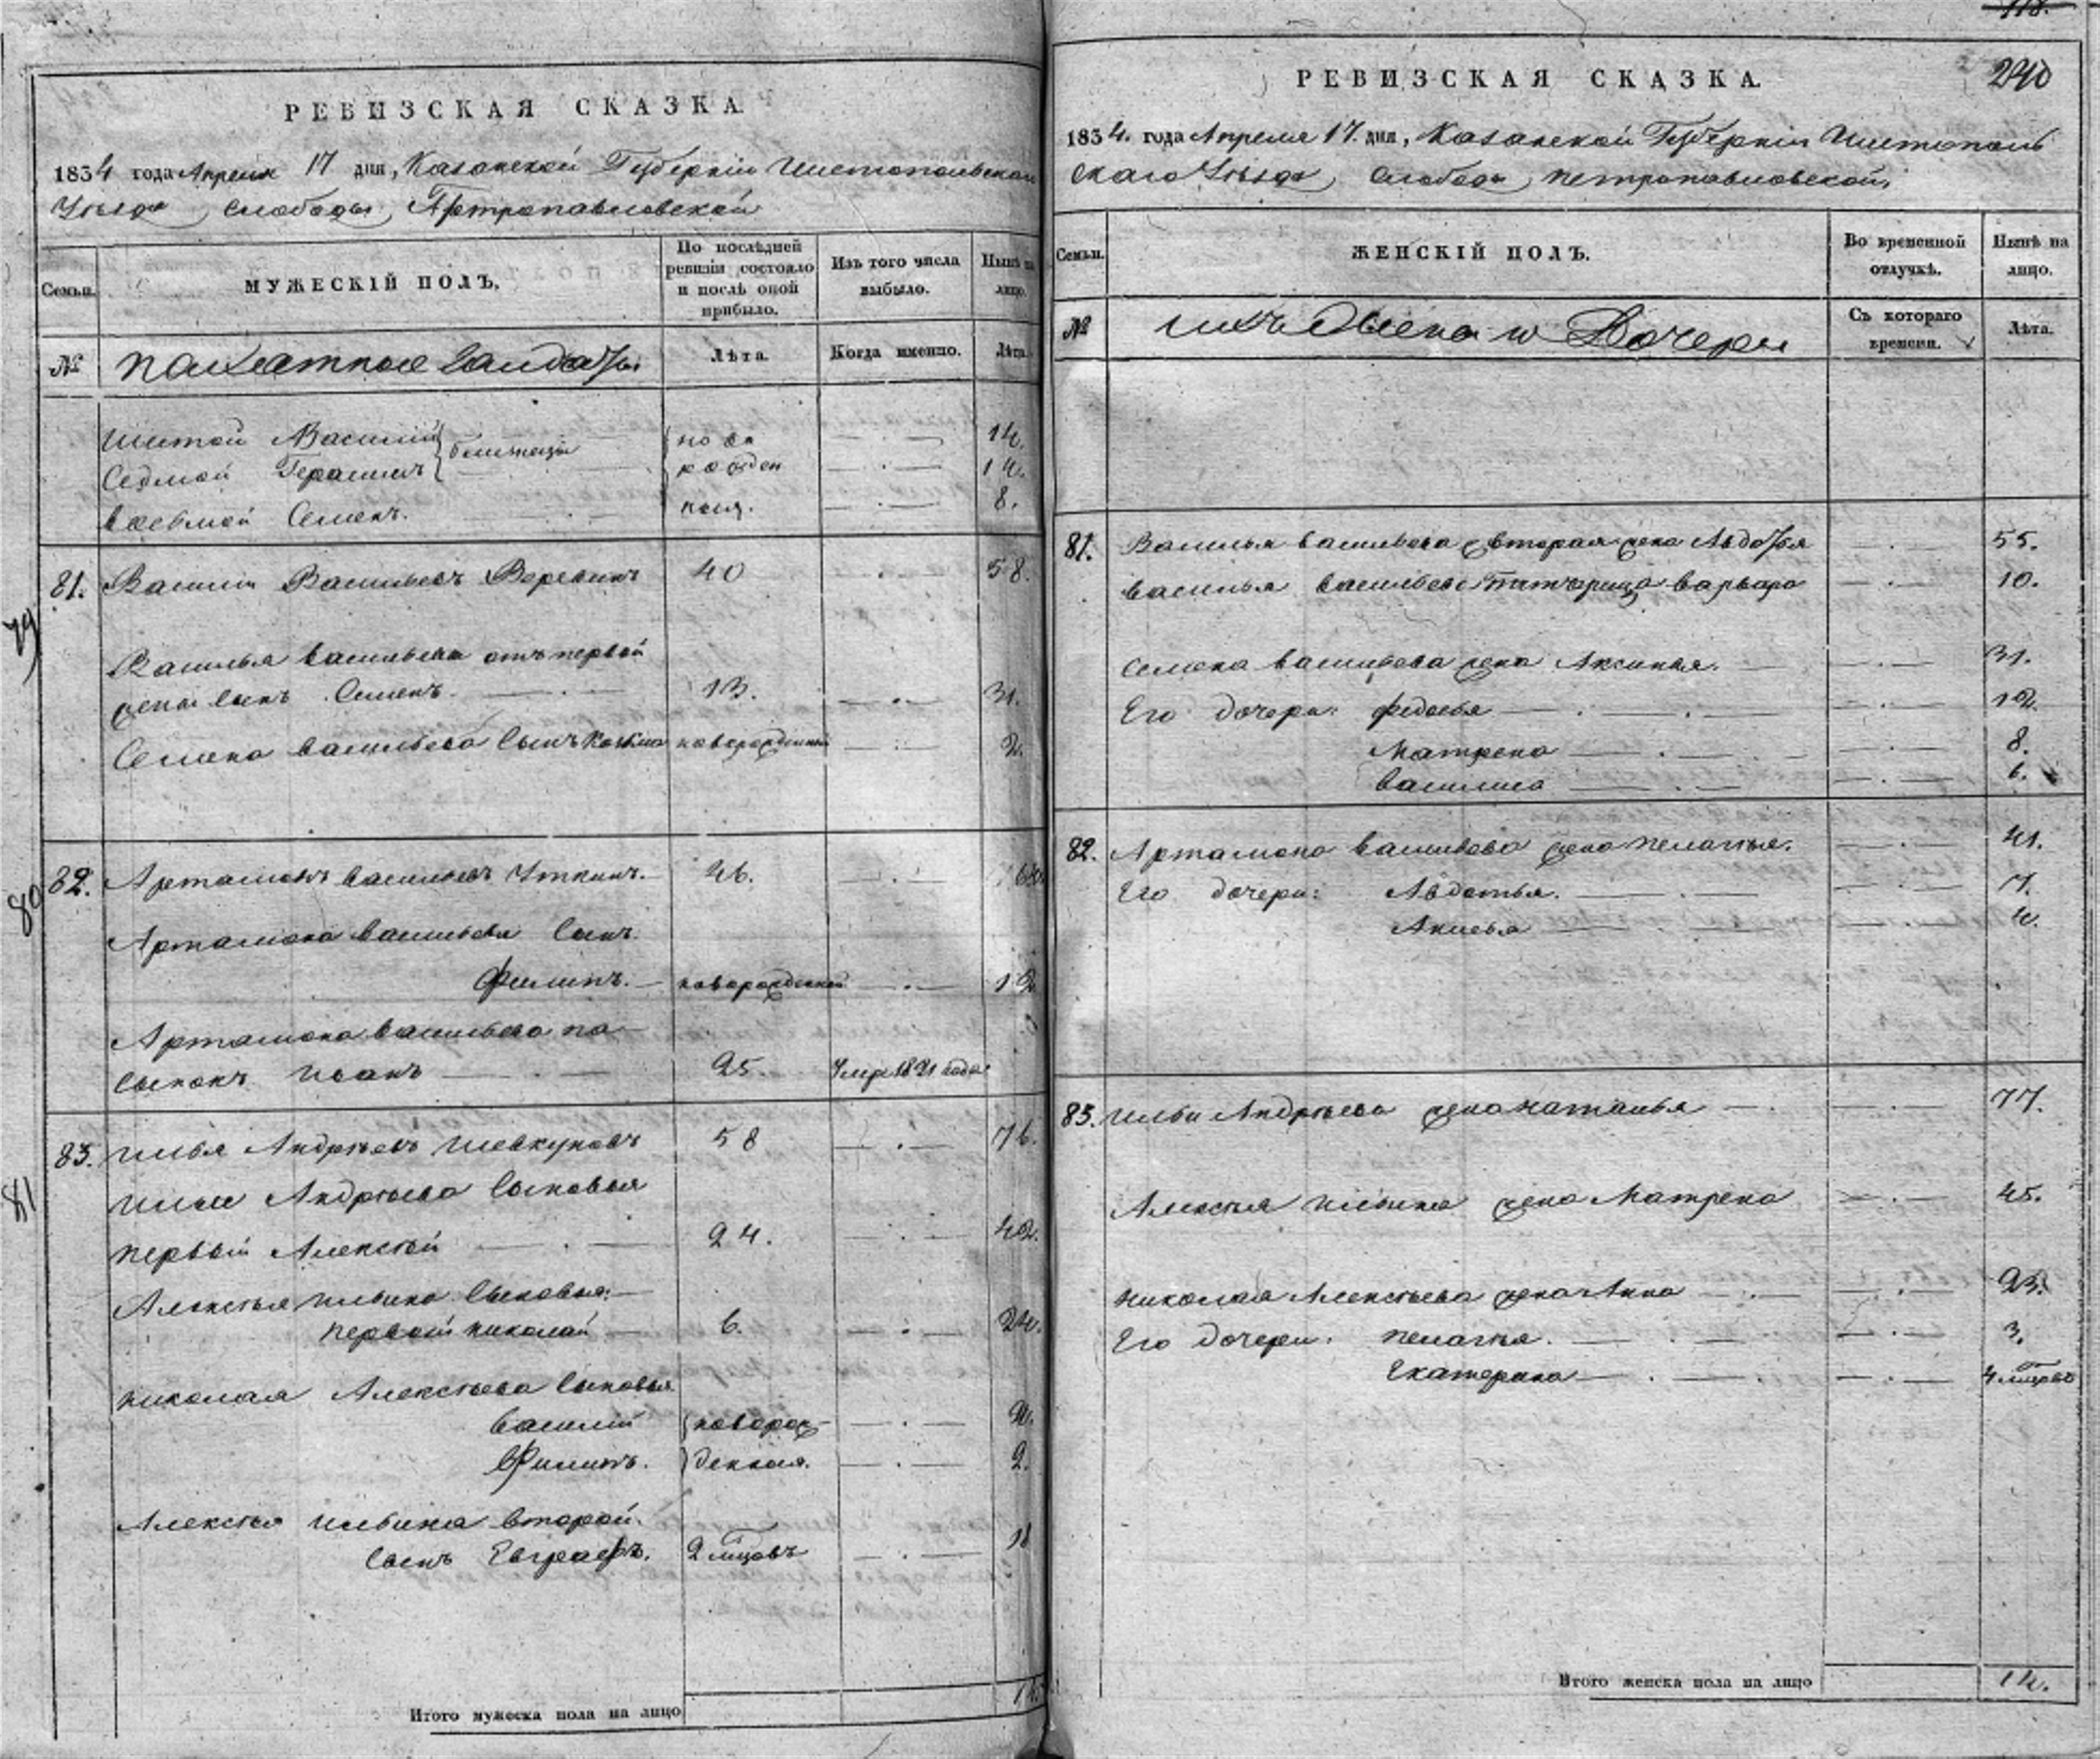 РЕВИЗСКАЯ СКАЗКА
1834 года Апреля 17 дня, Казанской Губерніи Чистопольскаго
Уѣзда Слободы Петропавловской
Семьи.
МУЖЕСКІЙ ПОЛЪ.
По послѣдней ревизіи состояло и послѣ оной прибыло.
Изъ того числа выбыло.
Нынѣ на лицо.
№
Пахатные Солдаты
Лѣта.
Когда именно.
Лѣта.
Шестой Василій близнецы ново 14.
Седмой Герасимъ рожден 14.
восьмой Семенъ. ныя. 8.
79
81. Василій Васильевъ Веревкинъ 40 58.
Василья васильева отъ первой
жены сынъ Семенъ. 13. 31.
Семена васильева сынъ Козьма новорожденный 2.
80
82. Артамонъ васильевъ Уткинъ. 46. 64.
Артамона васильева сынъ.
Филипъ. новорожденный 12
Артамона васильева па-
сынокъ Иванъ 25. Умре 1821 года.
81
83. Илья Андрѣевъ Шевкуновъ 58 76.
Ильи Андрѣева Сыновья
первый Алексѣй 24. 42.
Алексѣя Ильина Сыновья:
первый николай 6. 24.
николая Алексѣева Сыновья
василій новорож- 4.
Филипъ. денныя. 2.
Алексѣя ильина второй
сынъ Евграфъ. 2 мѣцовъ 18
Итого мужеска пола на лицо 14.
118.
290
РЕВИЗСКАЯ СКАЗКА.
1834. года Апреля 17. дня, Казанской Губерніи Чистополь
скаго Уѣзда, Слободы Петропавловской,
Семьи.
ЖЕНСКІЙ ПОЛЪ.
Во временной отлучкѣ.
Нынѣ на лицо.
№
ихъ Жены и Дочери
Съ котораго времени.
Лѣта.
81. Василья васильева вторая жена Авдотья 55.
василья васильева падчерица варвара 10.
Семена васильева жена Аксинья. 31.
Его дочери: федосья 12.
Матрена 8.
василиса 6.
82. Артамона васильева жена пелагея. 41.
Его дочери: Авдотья. 7.
Анисья 4.
83. Ильи Андрѣева жена наталья 77.
Алексѣя ильина жена Матрена 45.
николая Алексѣева жена Анна 23.
Его дочери: пелагея. 3.
Екатерина 4 мѣцовъ
Итого женска пола на лицо 14.